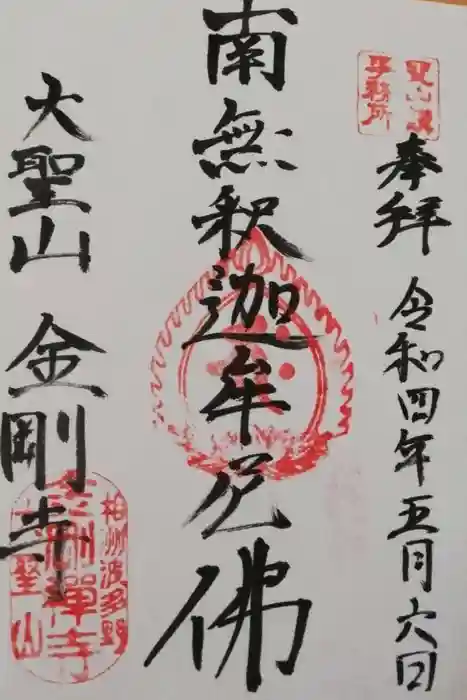 奉拝 令和四年五月六日
南無釈迦牟尼佛
大聖山 金剛寺
事務所
相州波多野
金剛禅寺
大聖山